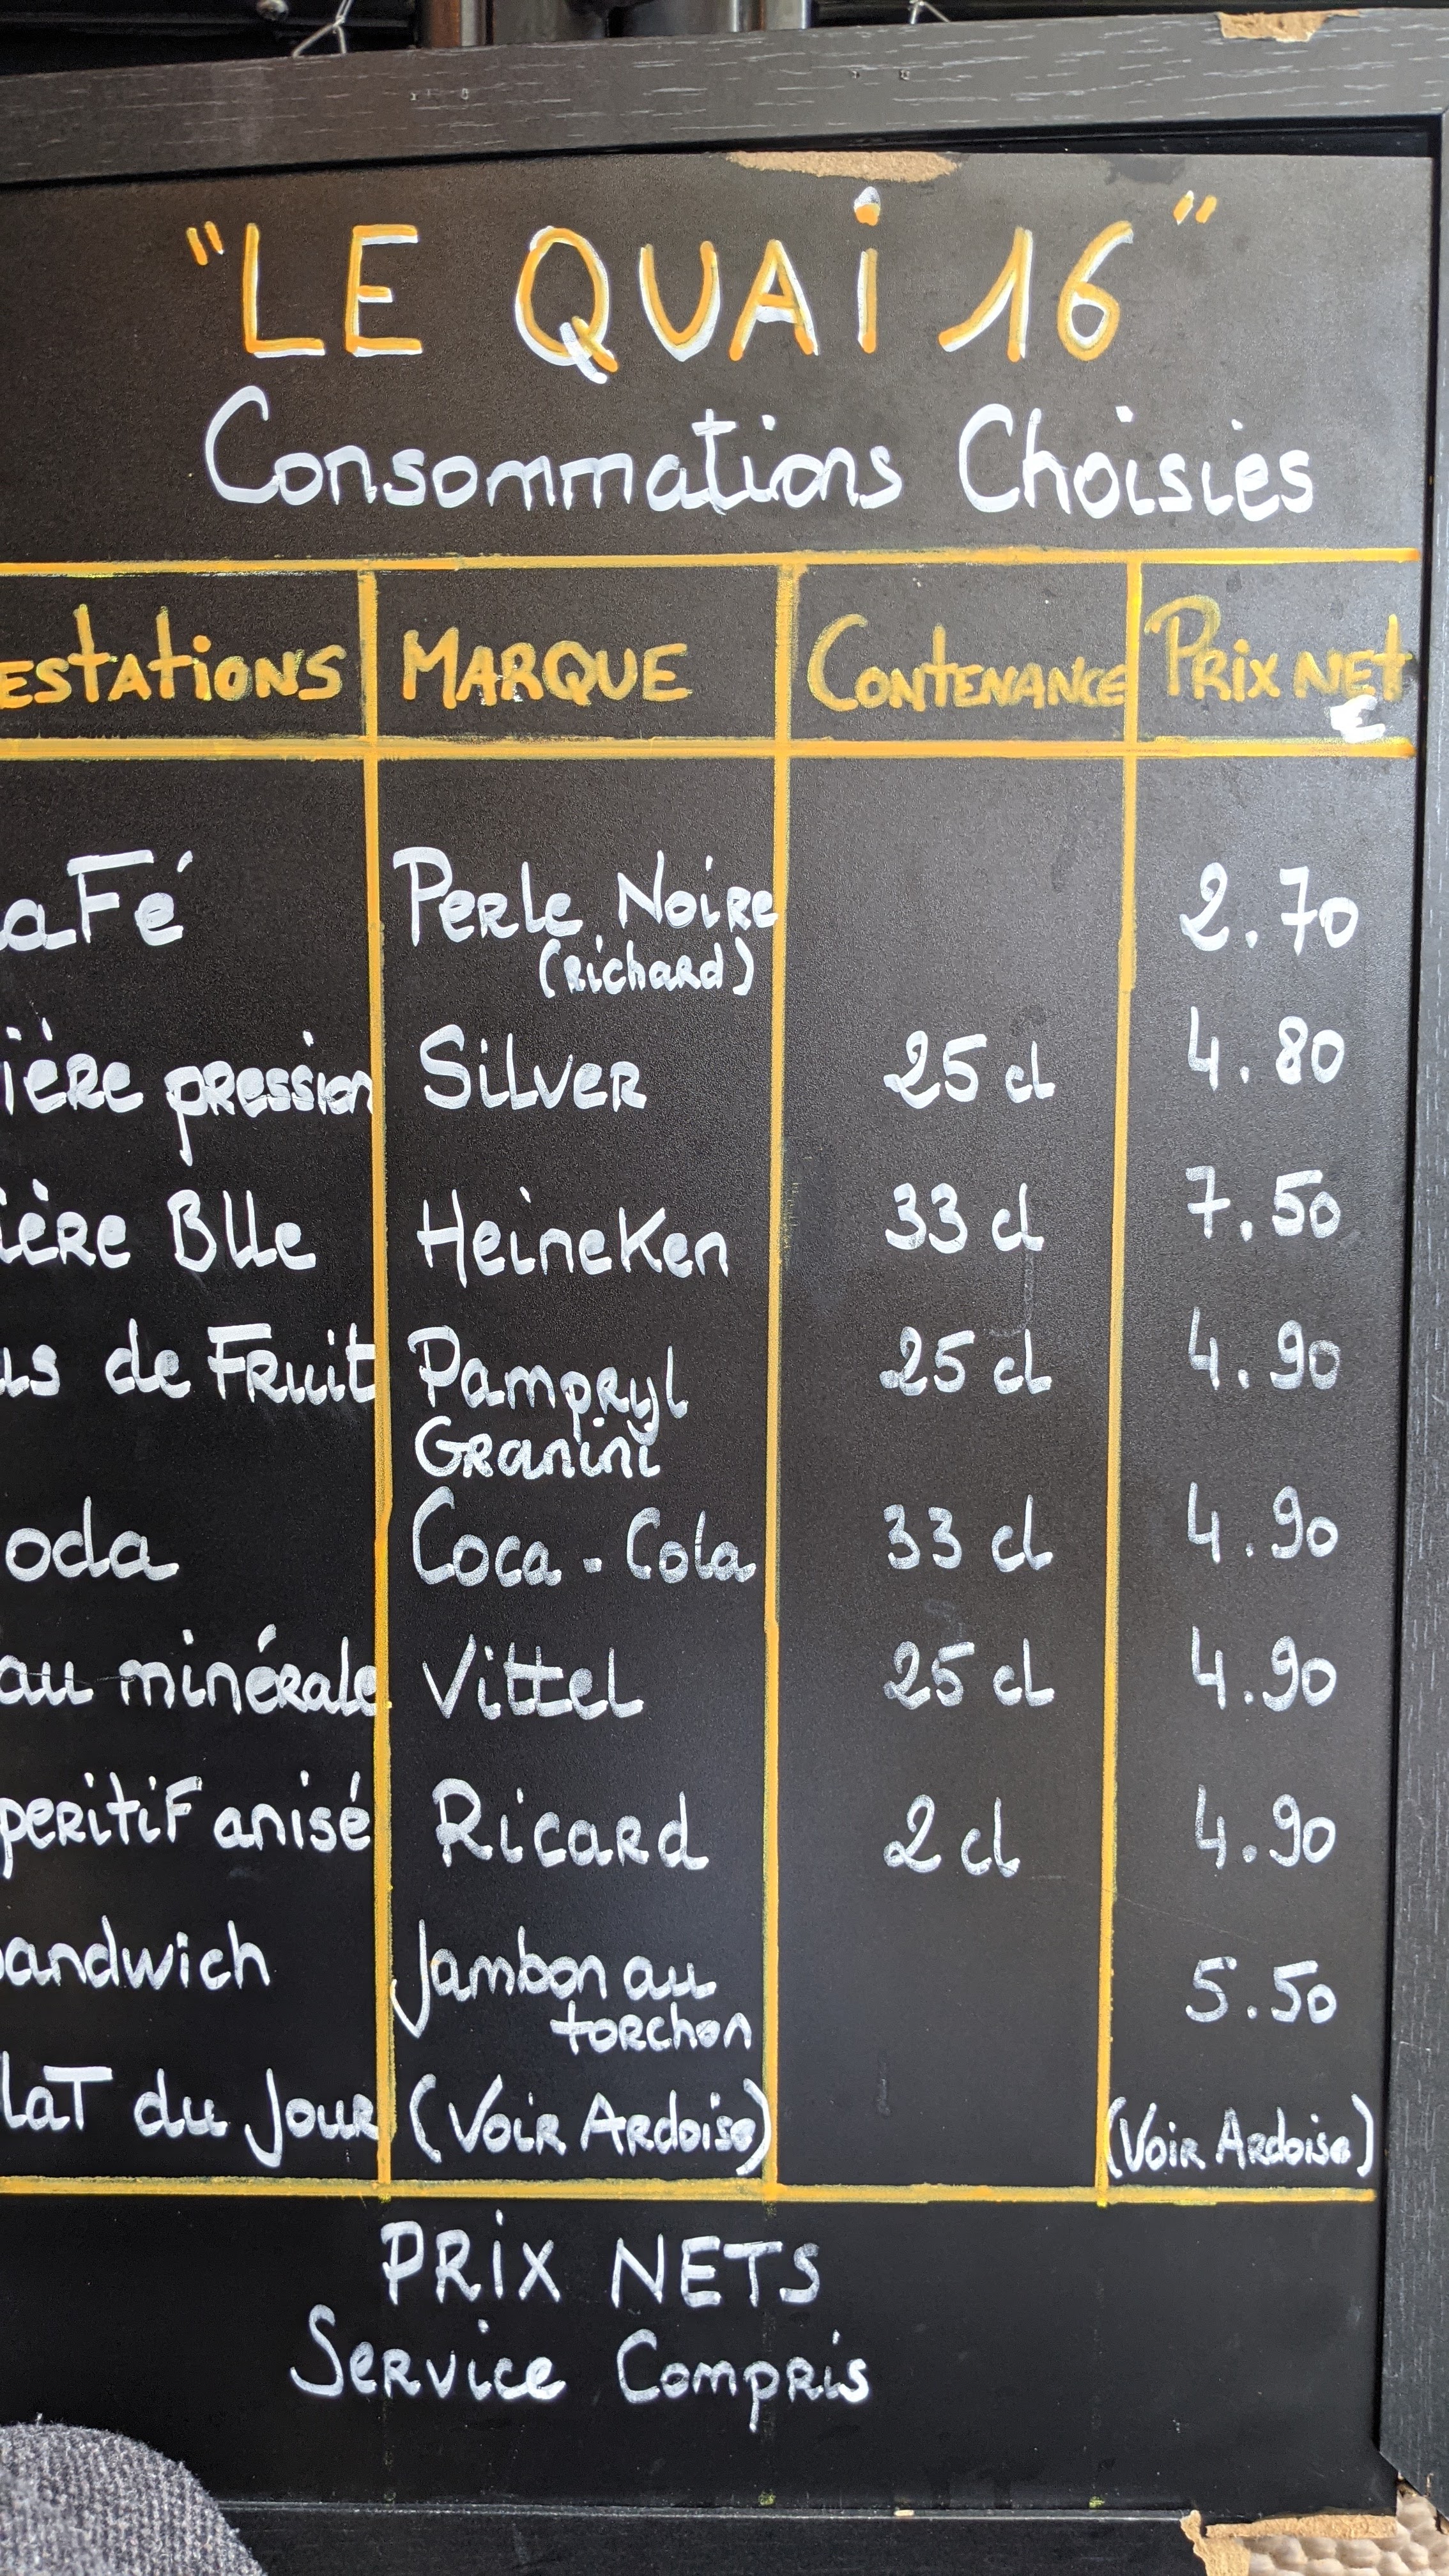 "LE QUAI 16"
Consommations Choisies
estations MARQUE Contenance Prix Net
€
afé Perle Noire 2.70
(Richard)
ière pression Silver 25 cl 4.80
ière Blle Heineken 33 cl 7.50
us de Fruit Pampryl 25 cl 4.90
Granini
oda Coca-Cola 33 cl 4.90
au minérale Vittel 25 cl 4.90
peritif anisé Ricard 2 cl 4.90
andwich Jambon au 5.50
torchon
lat du Jour (Voir Ardoise) (Voir Ardoise)
PRIX NETS
Service Compris